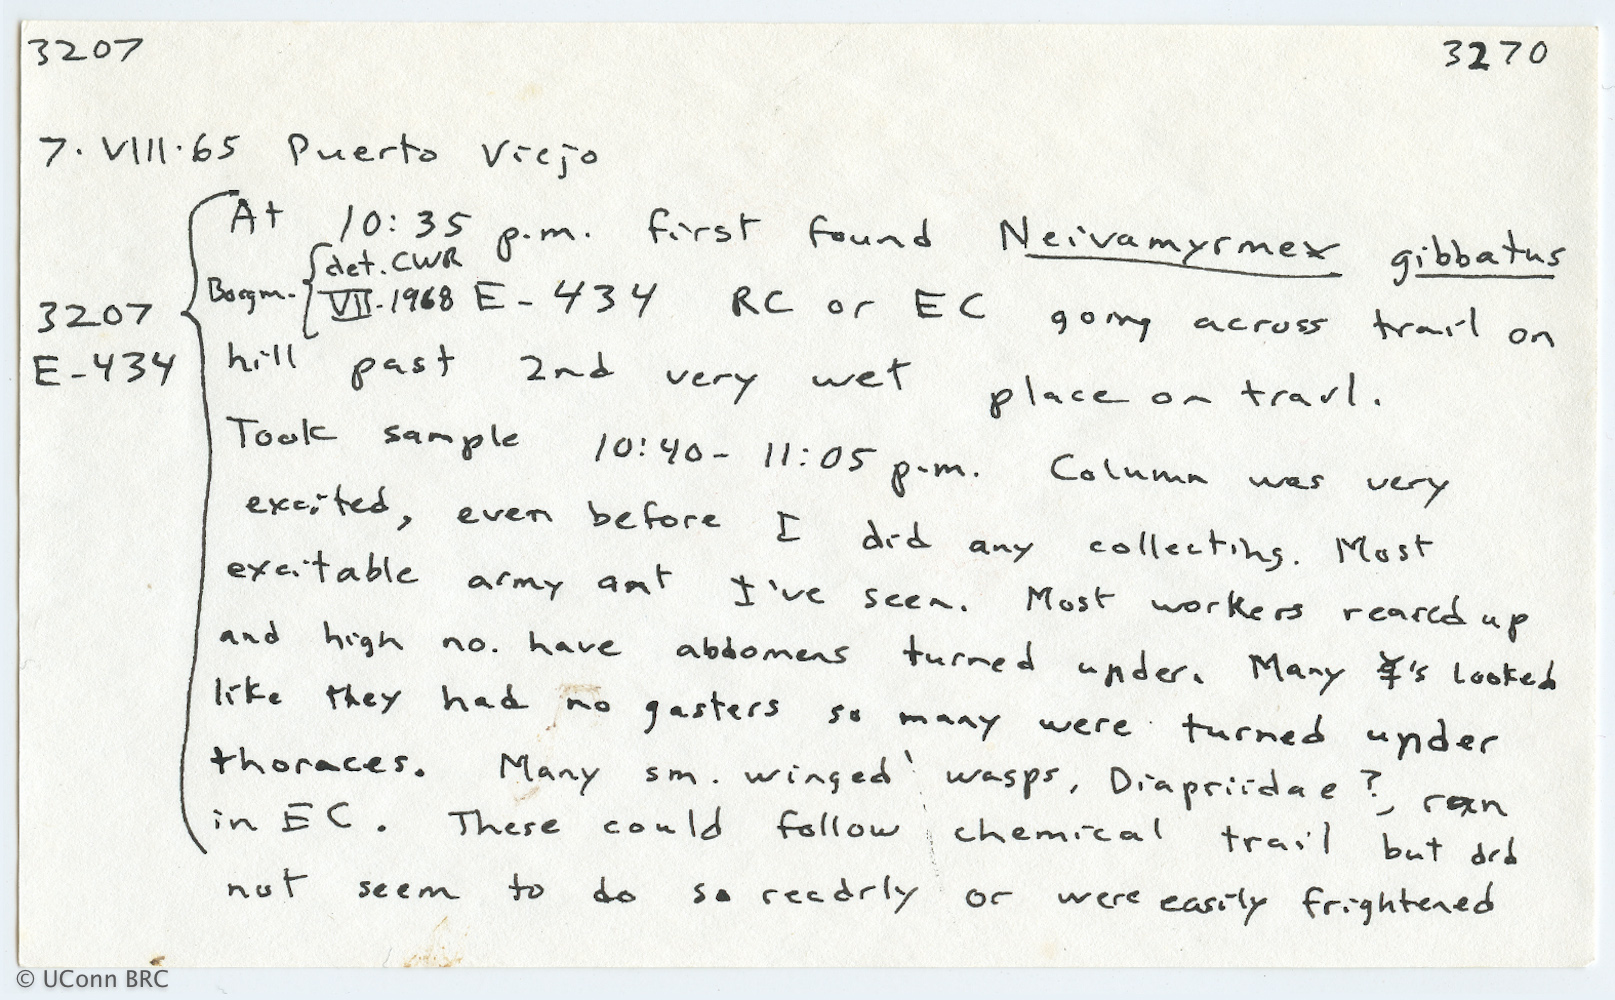 3207 3270
7·VIII·65 Puerto Viejo
At 10:35 p.m. first found Neivamyrmex gibbatus
Borgm. { det. CWR
VII-1968 E-434 RC or EC going across trail on
3207
E-434
hill past 2nd very wet place on trail.
Took sample 10:40-11:05 p.m. Column was very
excited, even before I did any collecting. Most
excitable army ant I've seen. Most workers reared up
and high no. have abdomens turned under. Many ☿'s looked
like they had no gasters so many were turned under
thoraces. Many sm. winged wasps, Diapriidae?, ran
in EC. These could follow chemical trail but did
not seem to do so readily or were easily frightened
© UConn BRC